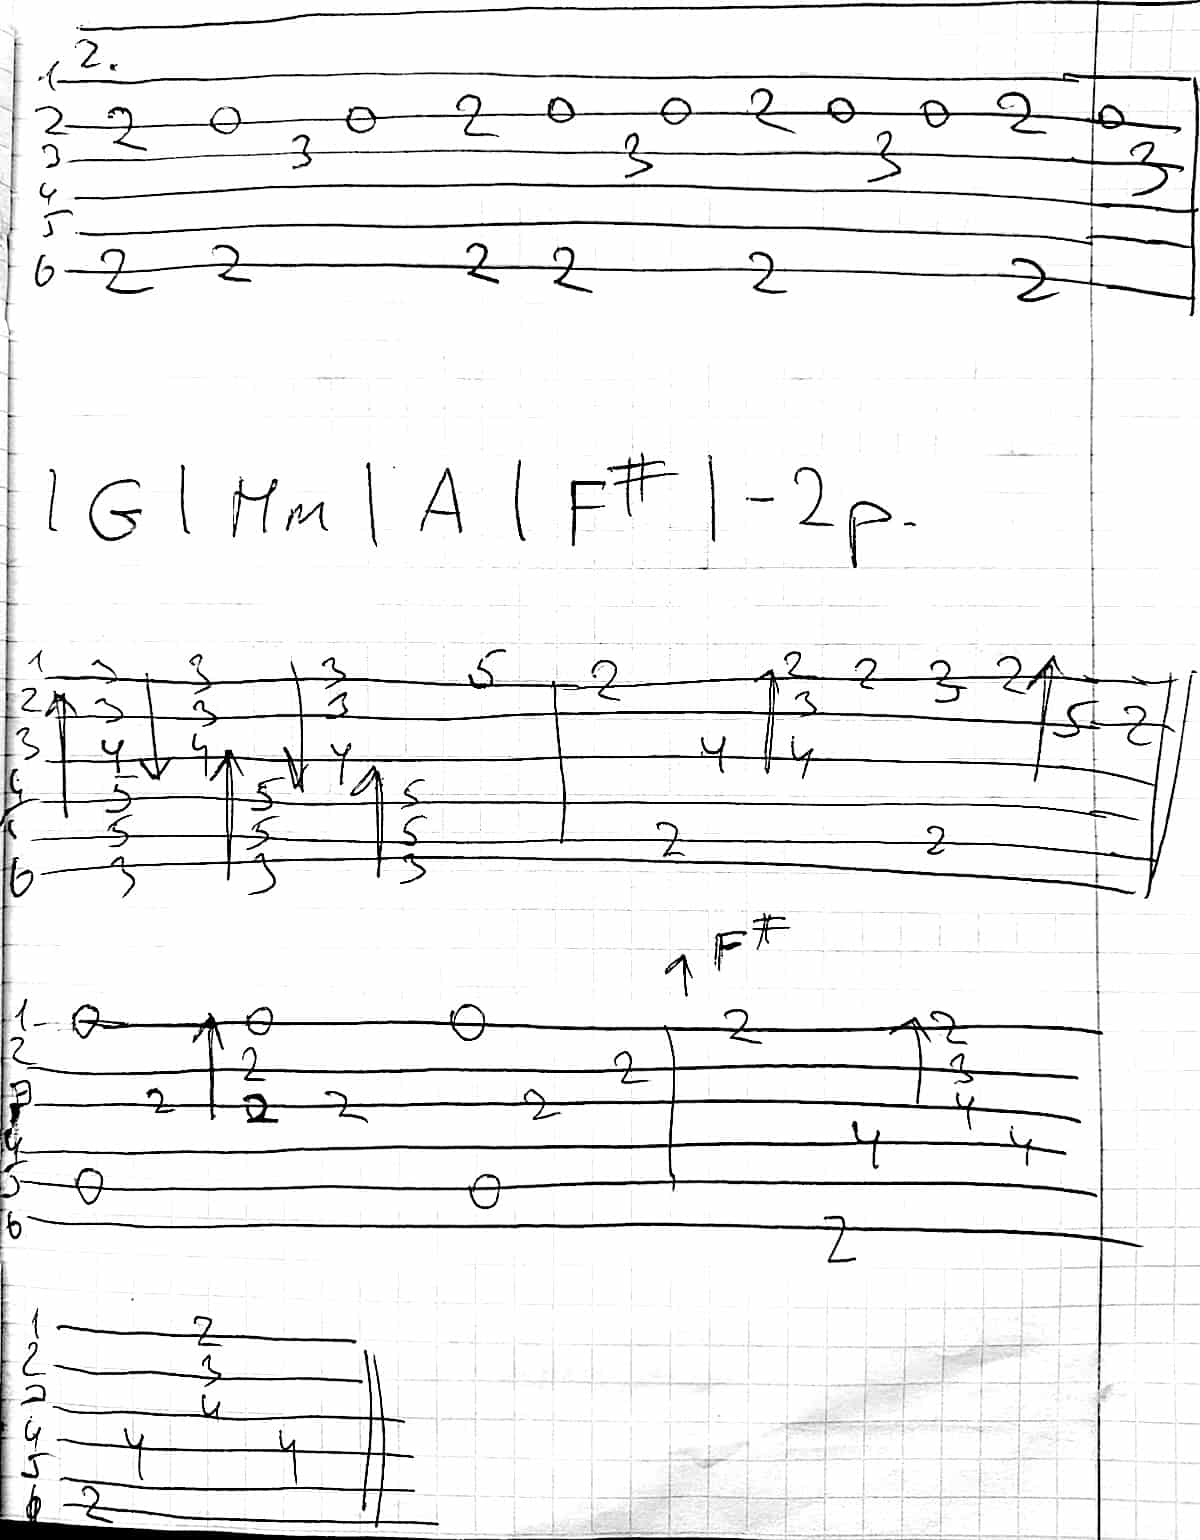 2.
1
2 2 0 0 2 0 0 2 0 0 2 0
3 3 3 3 3
4
5
6 2 2 2 2 2 2
| G | Hm | A | F# | - 2 р.
1 3 3 3 5 2 2 2 3 2
2 3 3 3 3 5 2
3 4 4 4 4 4
4 5 5 5
5 5 5 2 2
6 3 3 3
↑ F#
1 0 0 0 2 2
2 2 2 3
3 2 2 2 2 4
4 4 4
5 0 0
6 2
1 2
2 3
3 4
4 4 4
5
6 2